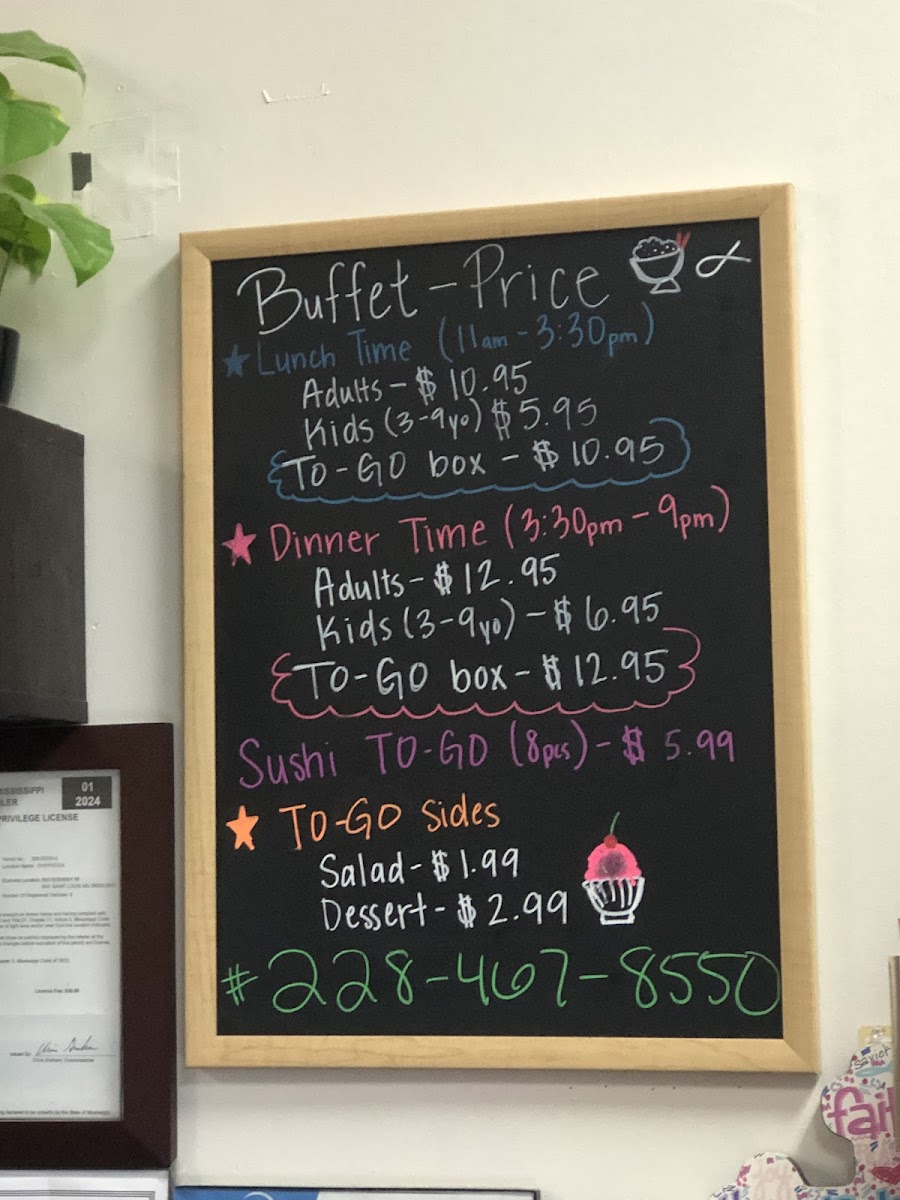 Buffet - Price
Lunch Time (11am - 3:30pm)
Adults - $ 10.95
Kids (3-9yo) $5.95
TO-GO box - $ 10.95
Dinner Time (3:30pm - 9pm)
Adults - $ 12.95
Kids (3-9yo) - $ 6.95
TO-GO box - $ 12.95
Sushi TO-GO (8pcs) - $ 5.99
TO-GO sides
Salad - $1.99
Dessert - $ 2.99
# 228-467-8550
MISSISSIPPI
01
2024
PRIVILEGE LICENSE
fai
joy